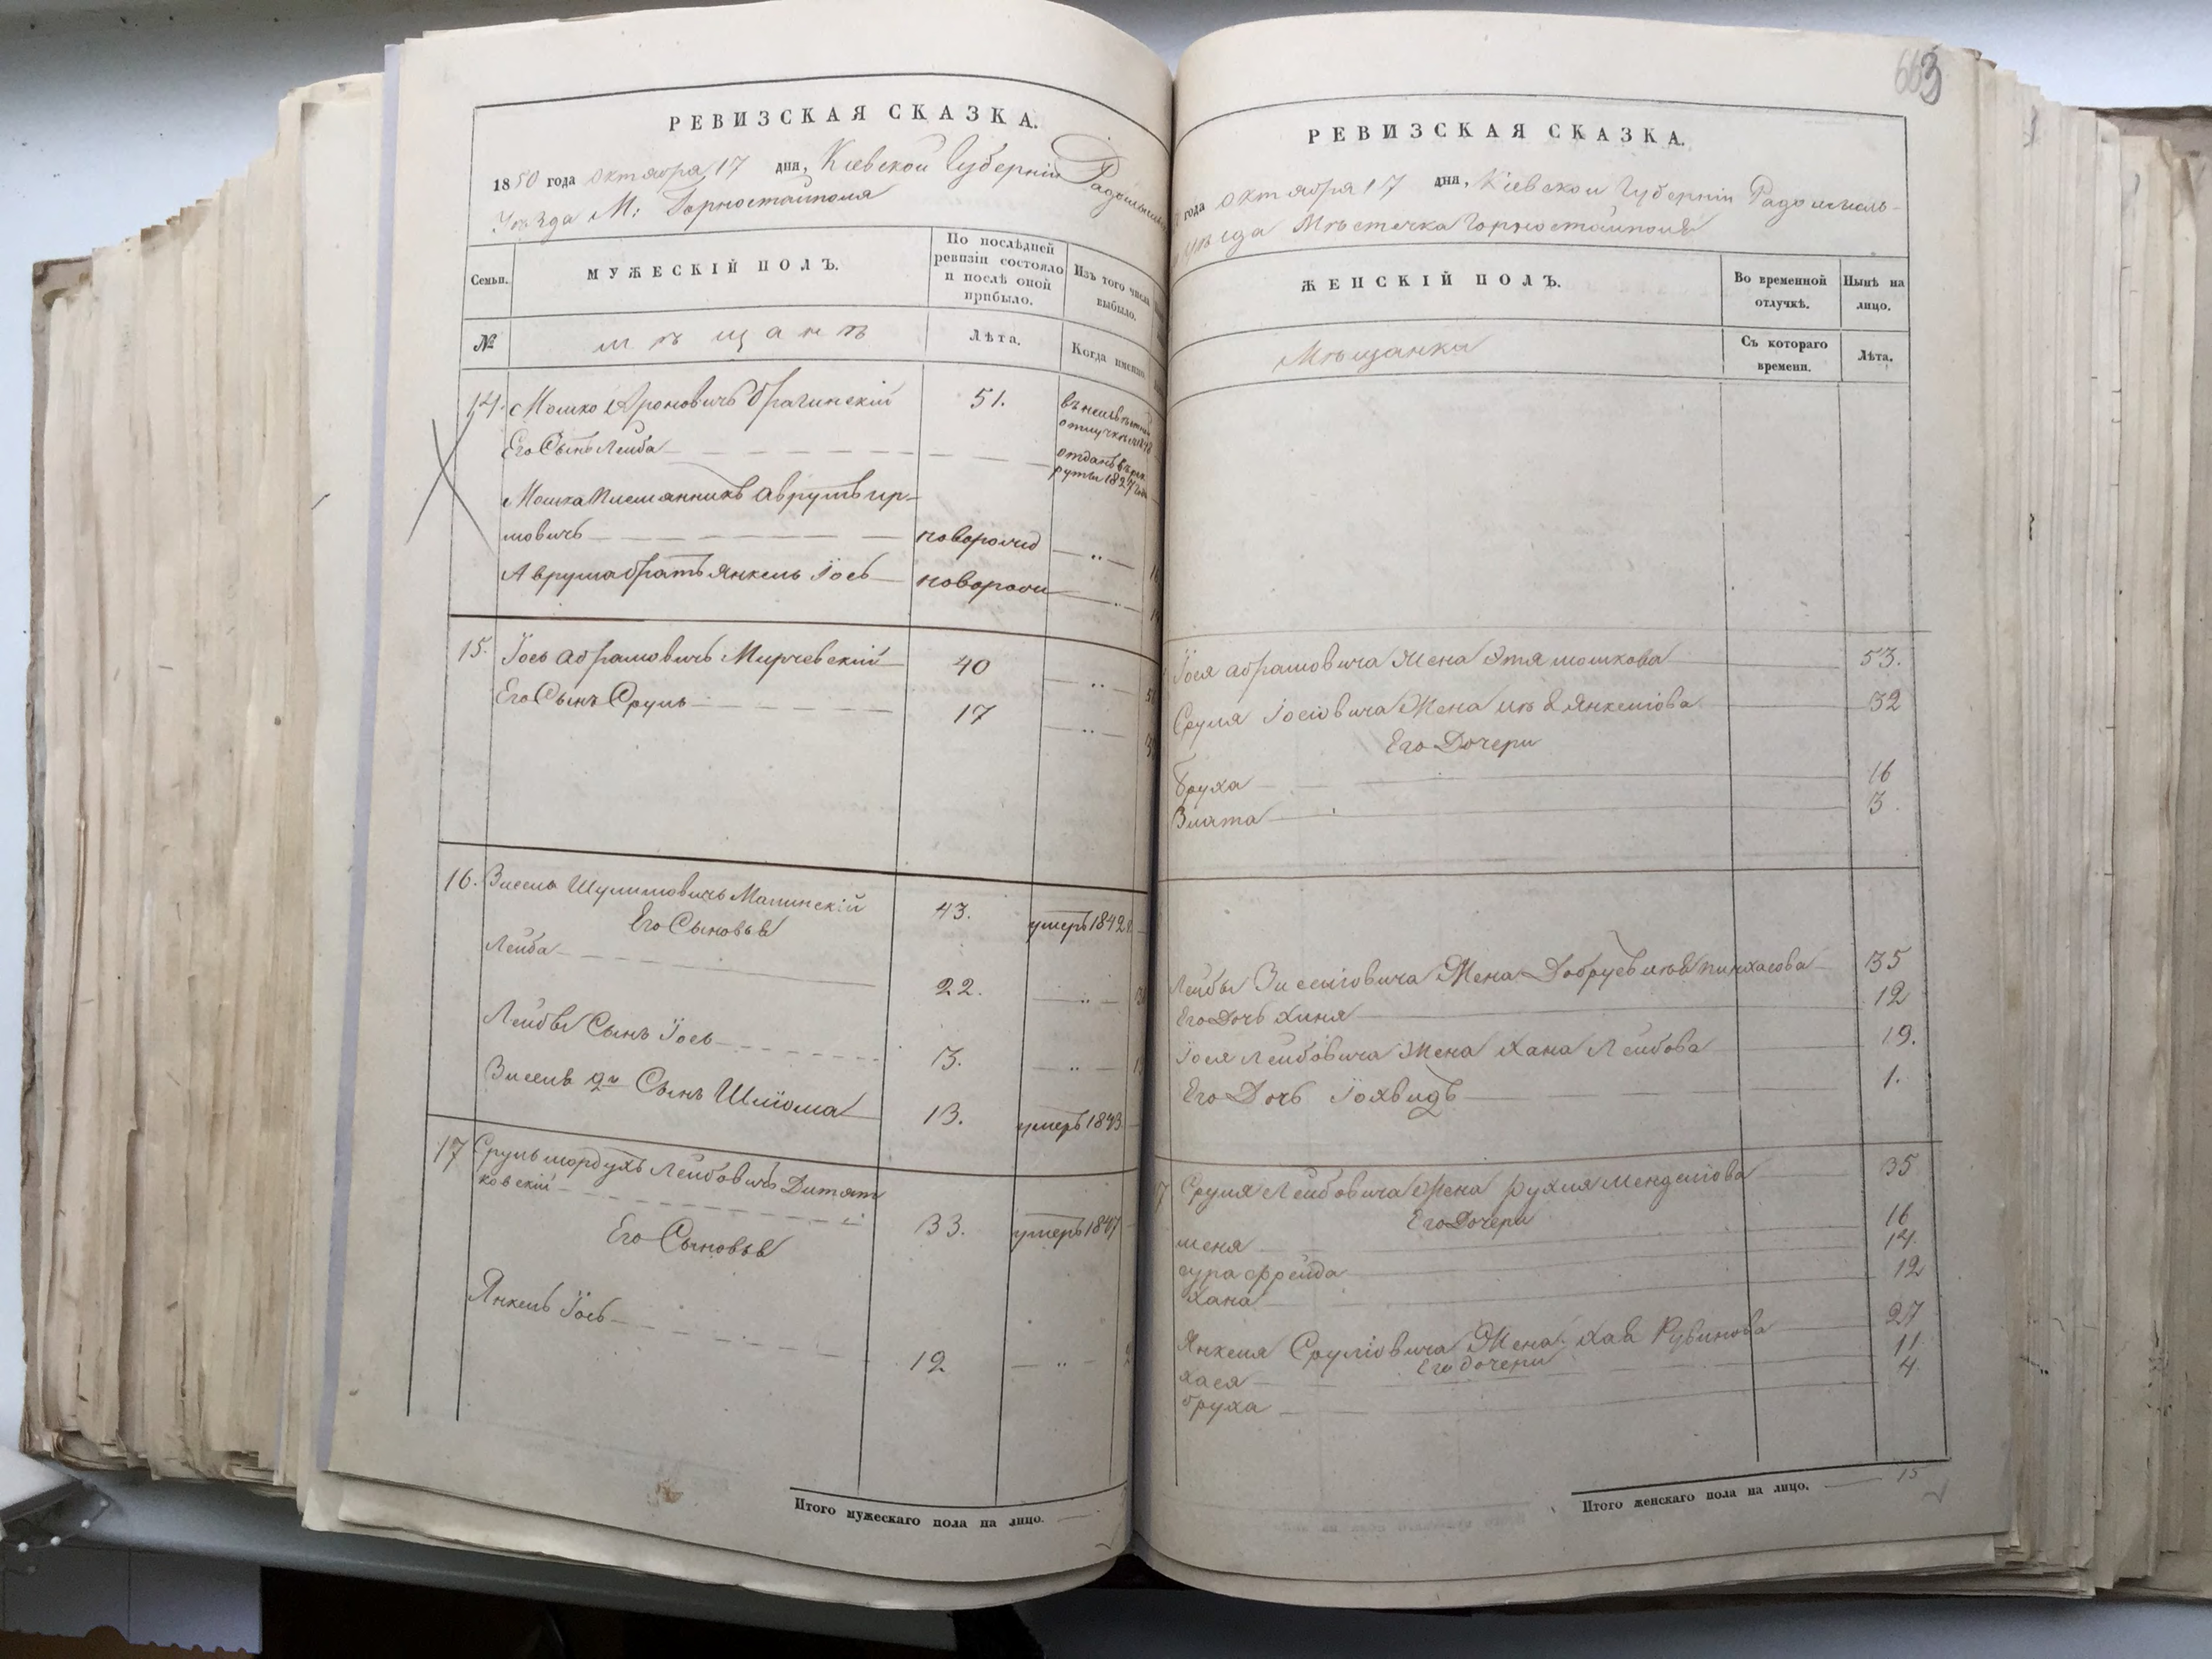 РЕВИЗСКАЯ СКАЗКА.
1850 года октября 17 дня, Кіевской Губерніи Радомысль
Уѣзда М: Горностайполя
Семьи.
МУЖЕСКІЙ ПОЛЪ.
По послѣдней ревизіи состояло и послѣ оной прибыло.
Изъ того числа выбыло.
№
мѣщанъ
Лѣта.
Когда именно
14. Мошко Ароновичъ Брагинскій 51. въ неизвѣстной отлучкѣ
Его Сынъ Лейба отданъ въ рекруты 1827 года
Мошка Племянникъ Аврумъ
мовичъ новорожд „
Аврума братъ Янкель Іось новорож „
15. Іось Абрамовичъ Мирчевскій 40 „
Его Сынъ Сруль 17 „
16. Зисель Шулимовичъ Малинскій 43. умеръ 1842
Его Сыновья
Лейба 22. „
Лейбы Сынъ Іось 3. „
Зиселя 2й Сынъ Шліома 13. умеръ 1843
17 Срульмордухъ Лейбовичъ Дитят
ковскій 33. умеръ 1847
Его Сыновья
Янкель Іось 12 „
Итого мужескаго пола на лицо.
663
РЕВИЗСКАЯ СКАЗКА.
года октября 17 дня, Кіевской Губерніи Радомысль-
Уѣзда Мѣстечка Горностайполя
ЖЕНСКІЙ ПОЛЪ.
Во временной отлучкѣ.
Нынѣ на лицо.
Мѣщанки
Съ котораго времени.
Лѣта.
Іося Абрамовича Жена Этя мошкова 53.
Сруля Іосіовича Жена Янкеліова 32
Его Дочери
Бруха 16
Злата 3.
Лейбы Зиселіовича Жена пинхасова 35
Его Дочь Хиня 12
Іося Лейбовича Жена Хана Лейбова 19.
Его Дочь Іохвидъ 1.
Сруля Лейбовича Жена Рухля Менделіова 35
Его Дочери
шеня 16
сура фрейда 14.
Хана 12
Янкеля Сруліовича Жена Хая Рувинова 27
Его дочери
хася 11
бруха 4
Итого женскаго пола на лицо. 15